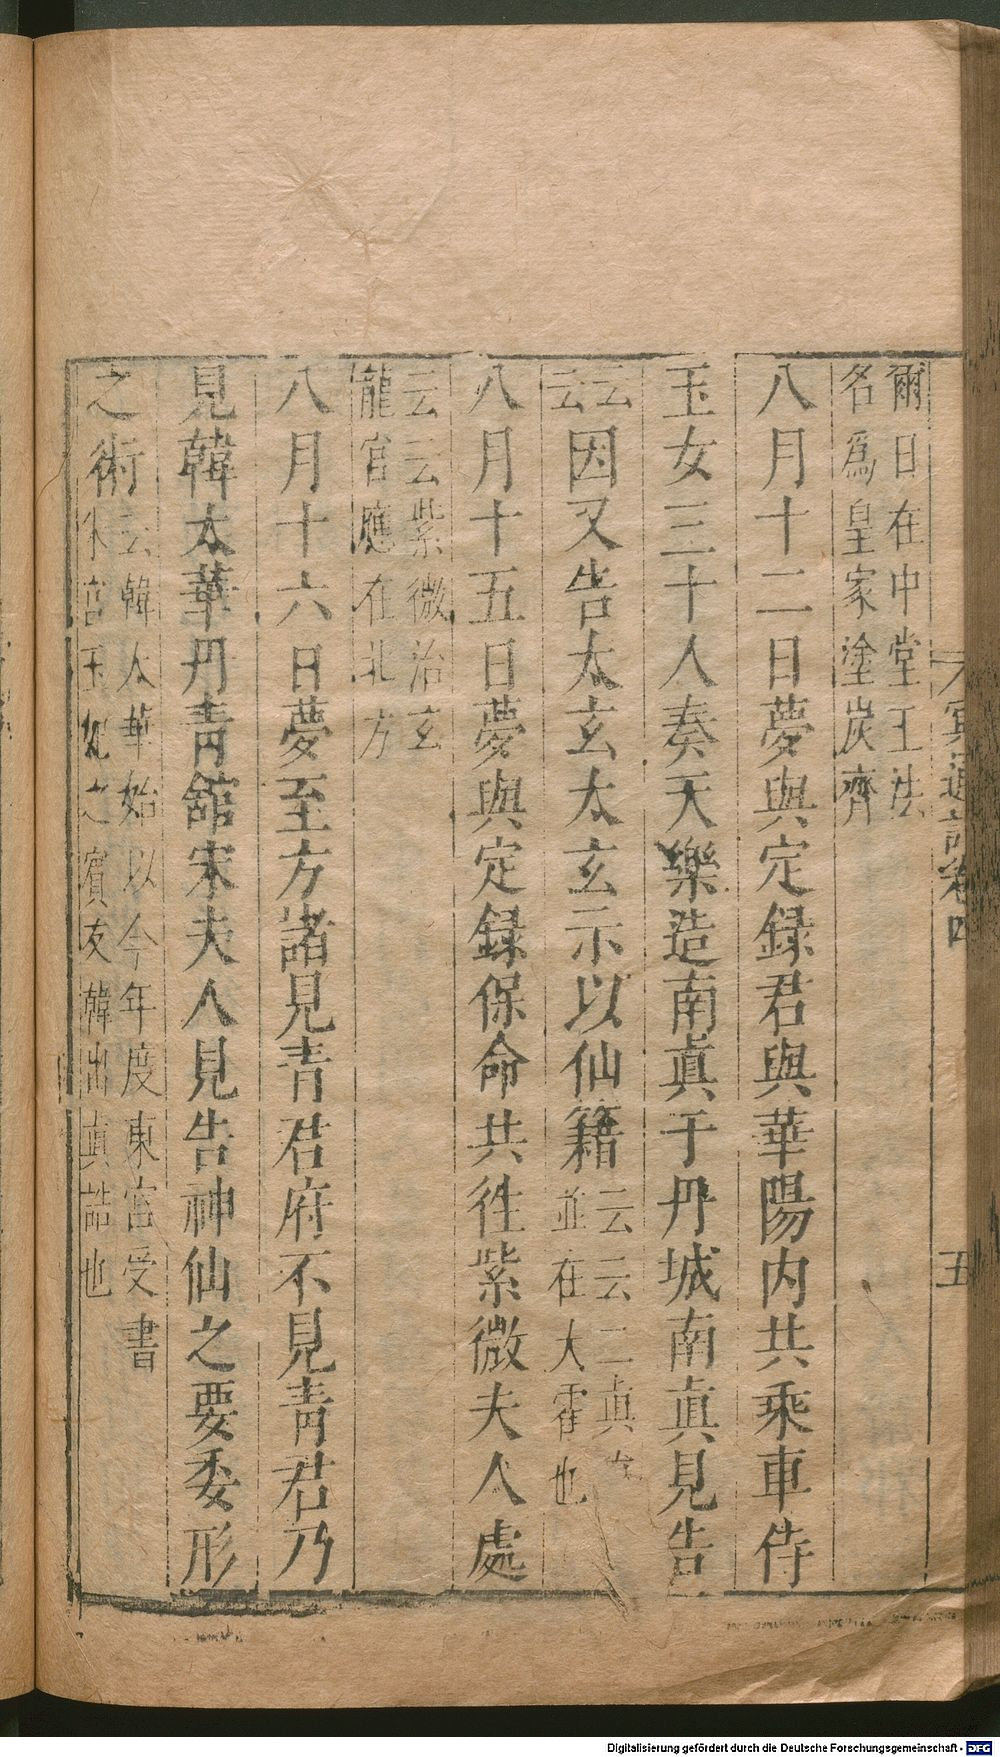 冥通記卷四
五
爾日在中堂王法
名爲皇家塗炭齊
八月十二日夢與定録君與華陽内共乘車侍
玉女三十人奏天樂造南眞于丹城南眞見告
云云因又告太玄太玄示以仙籍云云二眞
並在大霍也
八月十五日夢與定録保命共徃紫微夫人處
云云紫微治玄
龍宮應在北方
八月十六日夢至方諸見青君府不見青君乃
見韓太華丹青舘宋夫人見告神仙之要委形
之術云云韓太華始以今年度東宮受書
宋宮玉妃之賓友韓出眞誥也
Digitalisierung gefördert durch die Deutsche Forschungsgemeinschaft - DFG